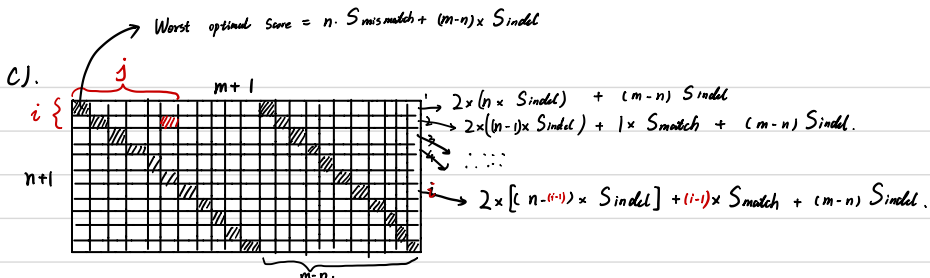 Worst optimal score = n. Smismatch + (m-n) x Sindel
C).
j
m+1
i {
1 → 2x(n x Sindel) + (m-n) Sindel
2 → 2x((n-1)x Sindel) + 1 x Smatch + (m-n) Sindel.
3
4
n+1
i → 2x[(n-(i-1)) x Sindel] + (i-1) x Smatch + (m-n) Sindel.
m-n.